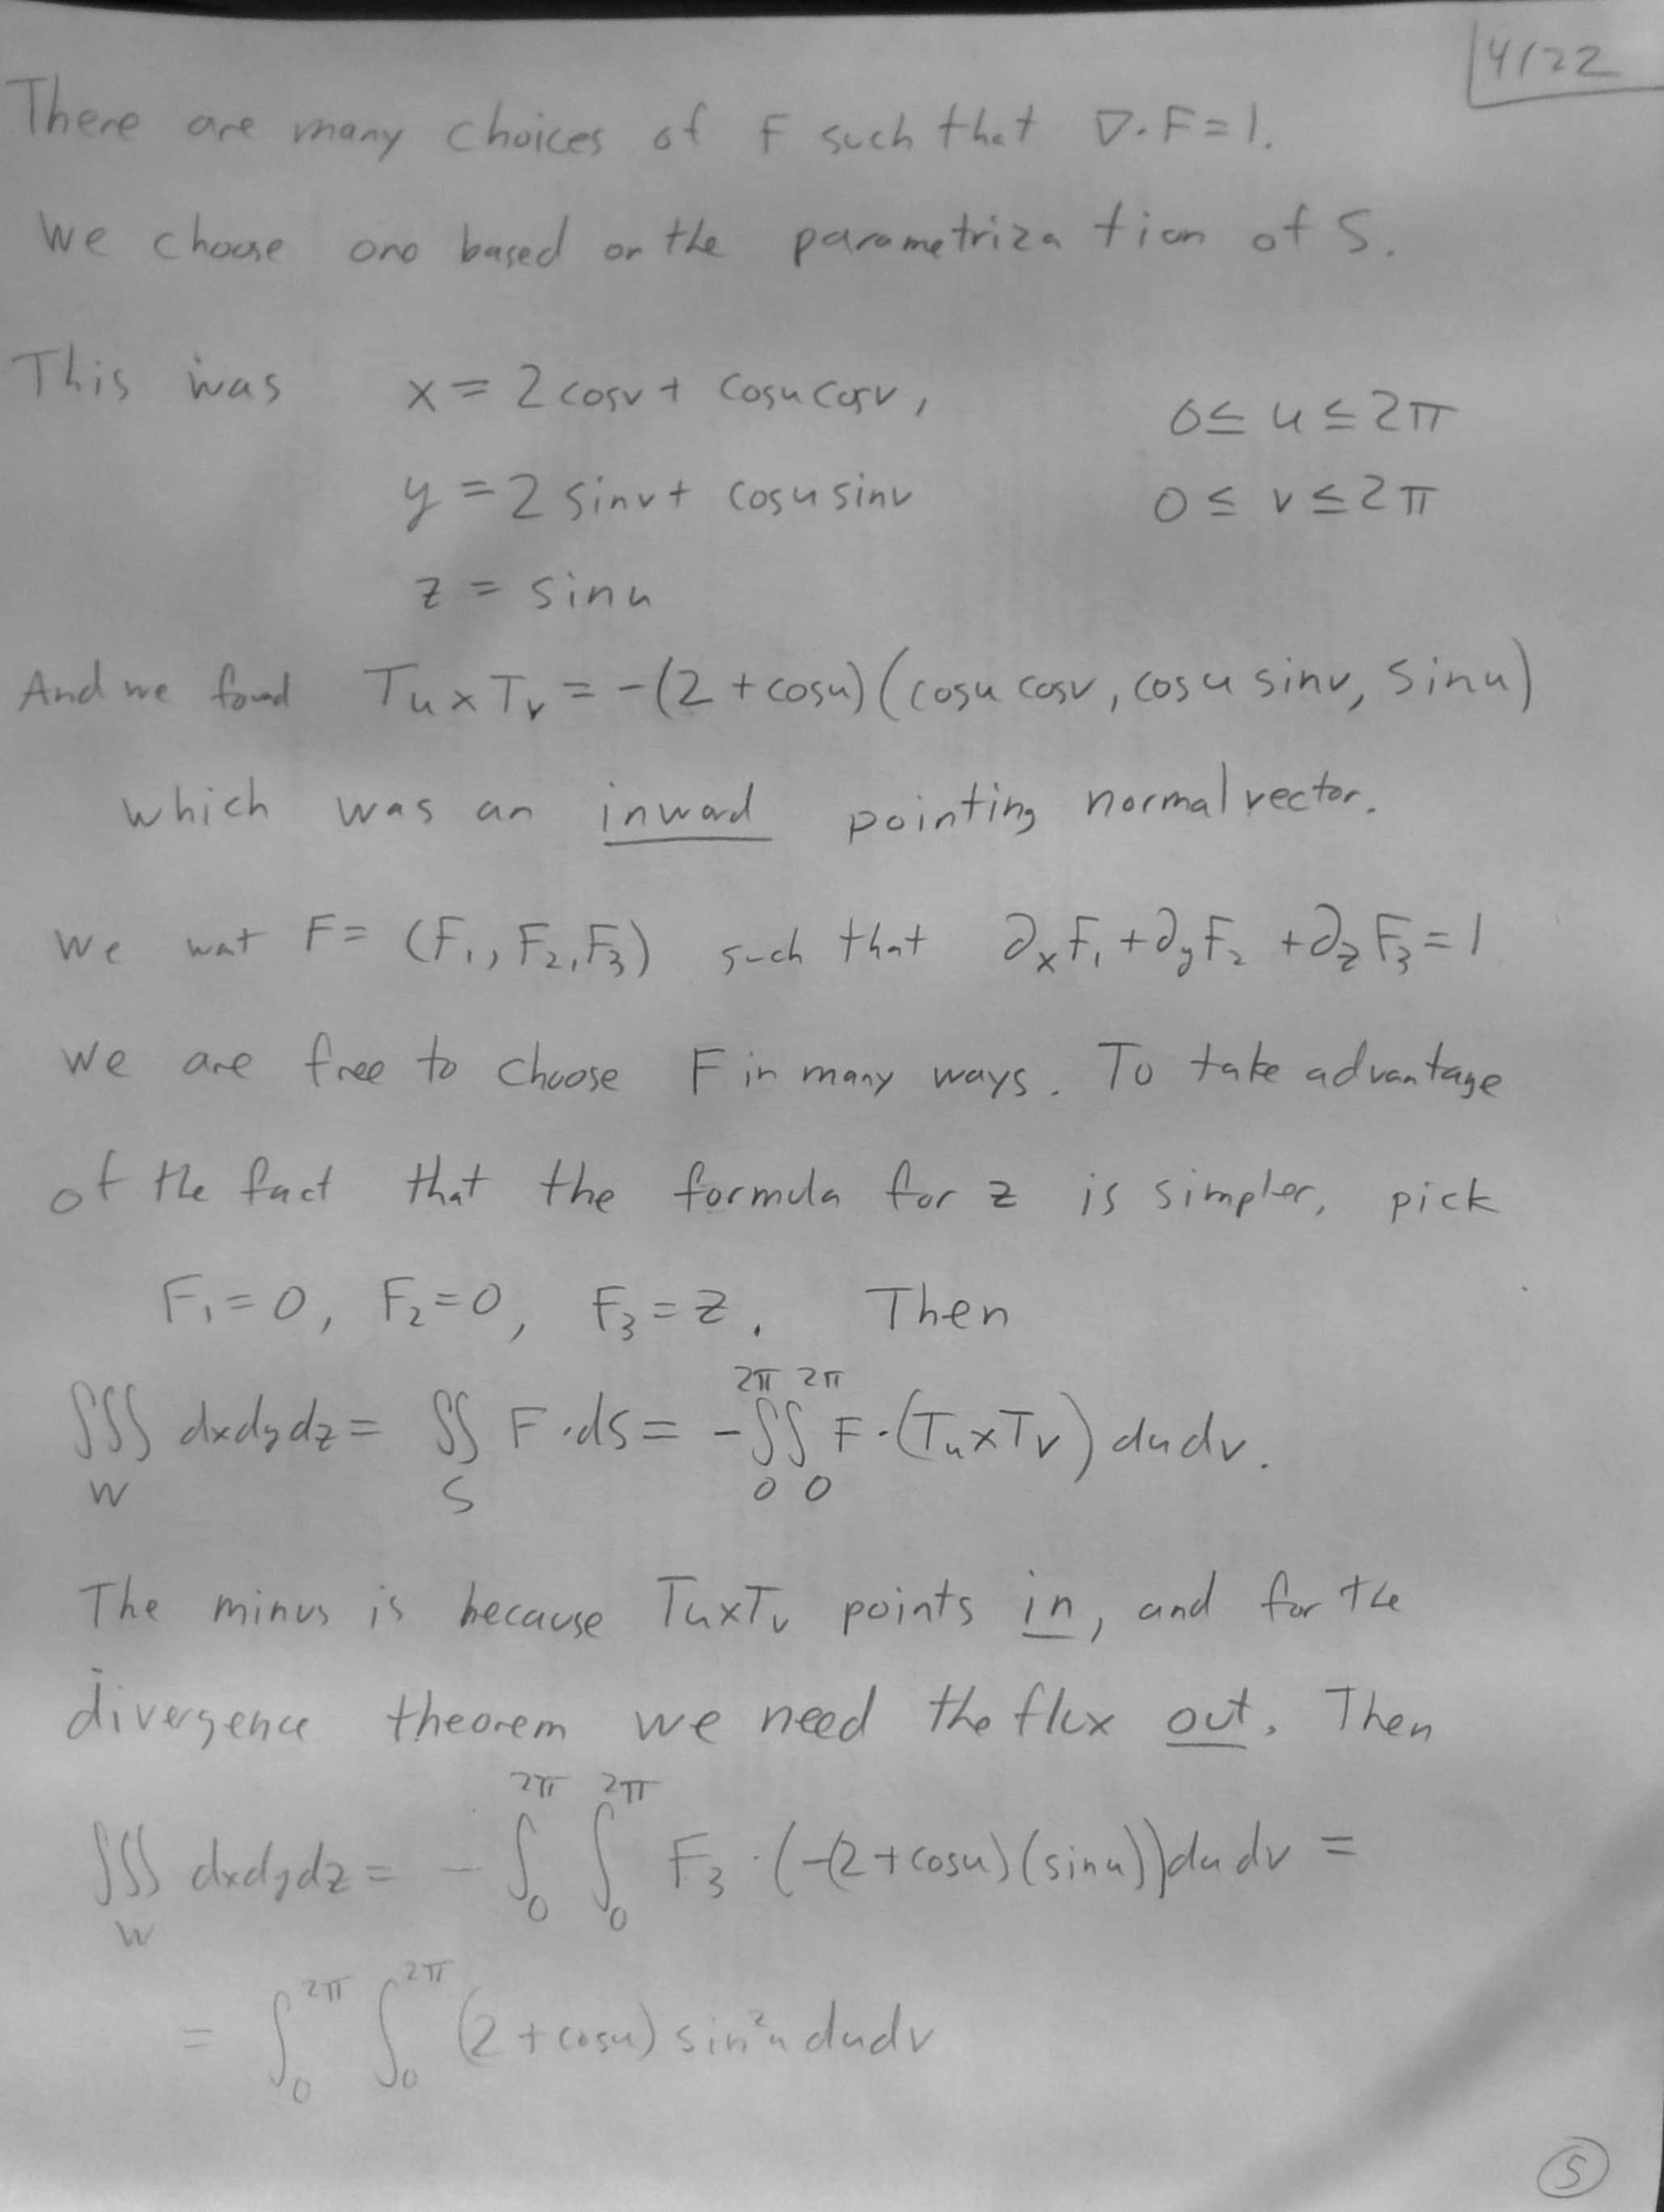 4/22
There are many choices of F such that ∇·F=1.
We choose one based on the parametrization of S.
This was x = 2cosv + cosu cosv, 0 ≤ u ≤ 2π
y = 2 sinv + cosu sinv 0 ≤ v ≤ 2π
z = sinu
And we found Tu × Tv = -(2 + cosu)(cosu cosv, cosu sinv, sinu)
which was an inward pointing normal vector.
We wat F = (F₁, F₂, F₃) such that ∂ₓF₁ + ∂yF₂ + ∂zF₃ = 1
We are free to choose F in many ways. To take advantage
of the fact that the formula for z is simpler, pick
F₁ = 0, F₂ = 0, F₃ = z. Then
∭_W dxdydz = ∬_S F·dS = -∫₀^2π ∫₀^2π F·(Tu×Tv) dudv.
The minus is because Tu×Tv points in, and for the
divergence theorem we need the flux out. Then
∭_W dxdydz = -∫₀^2π ∫₀^2π F₃·(-(2+cosu)(sinu))dudv =
= ∫₀^2π ∫₀^2π (2+cosu) sin²u dudv
5